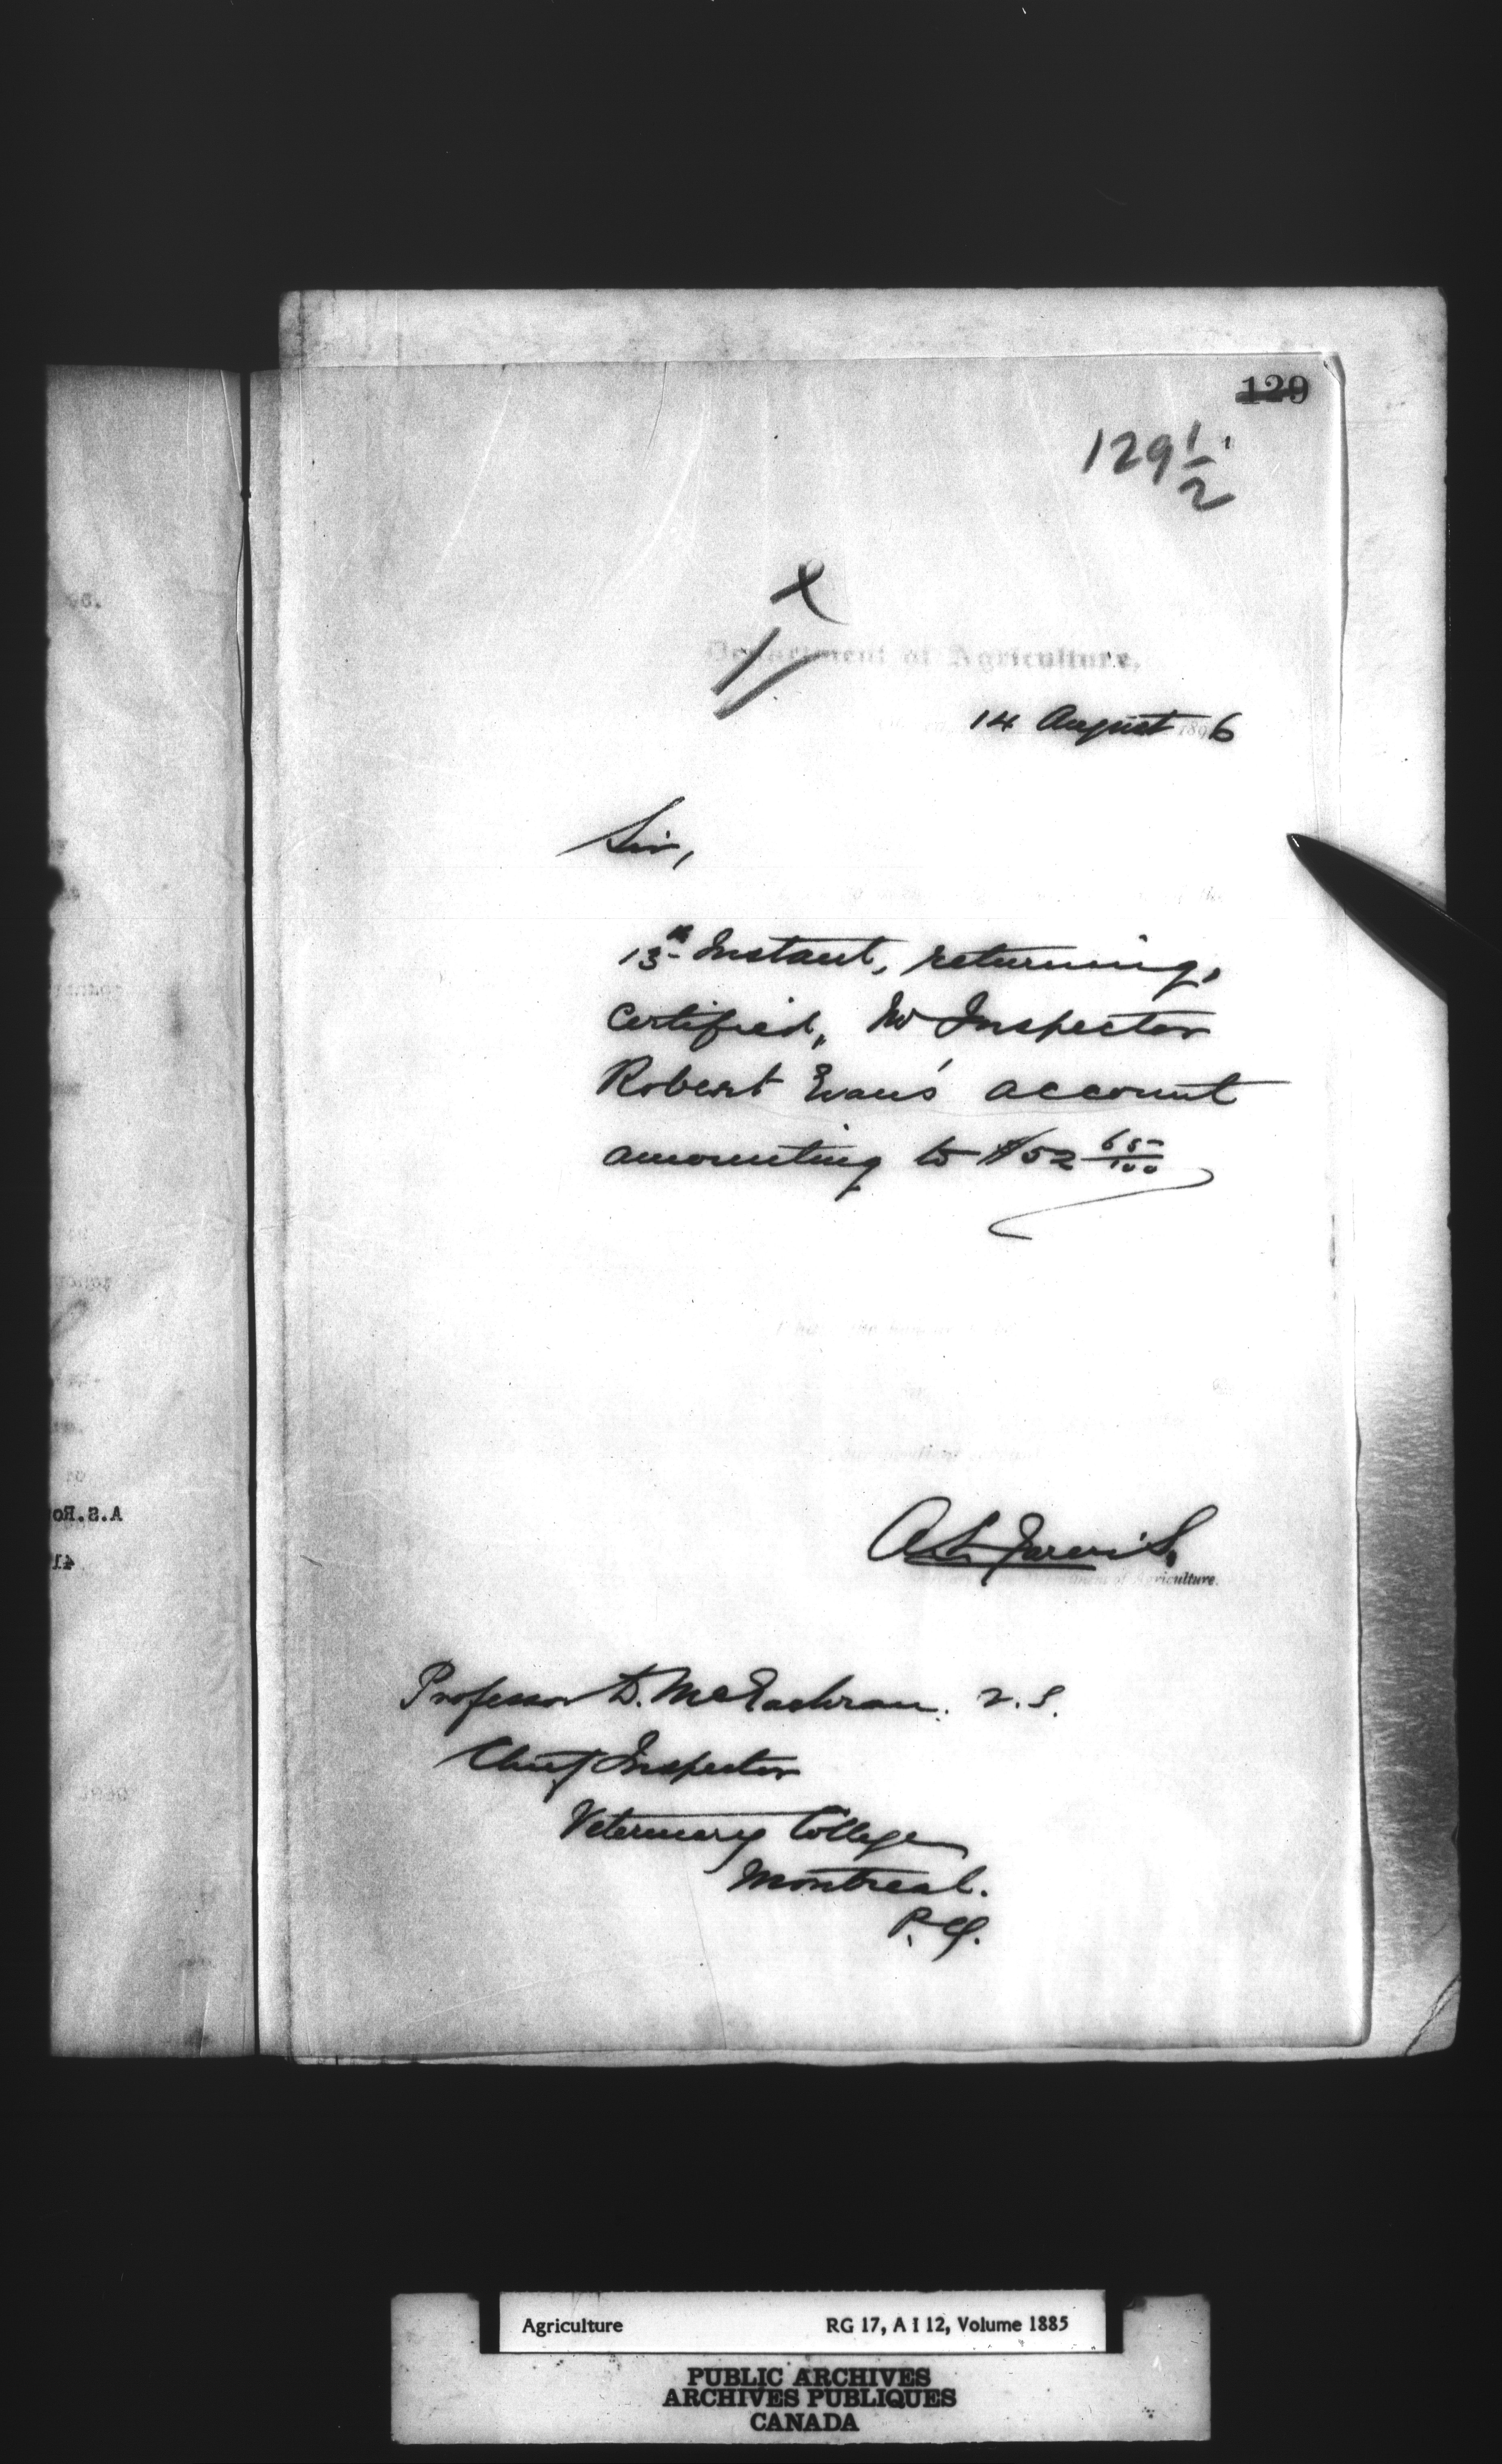 129
129 1/2
Department of Agriculture,
14 August 1896
Sir,
13th Instant, returning,
Certified, Mr Inspector
Robert Evans' account
amounting to $52 65/100
A.L. Jarvis,
Department of Agriculture.
Professor D. McEachran. V.S.
Chief Inspector
Veterinary College
Montreal.
P.Q.
A.S.Ro
Agriculture RG 17, A I 12, Volume 1885
PUBLIC ARCHIVES
ARCHIVES PUBLIQUES
CANADA